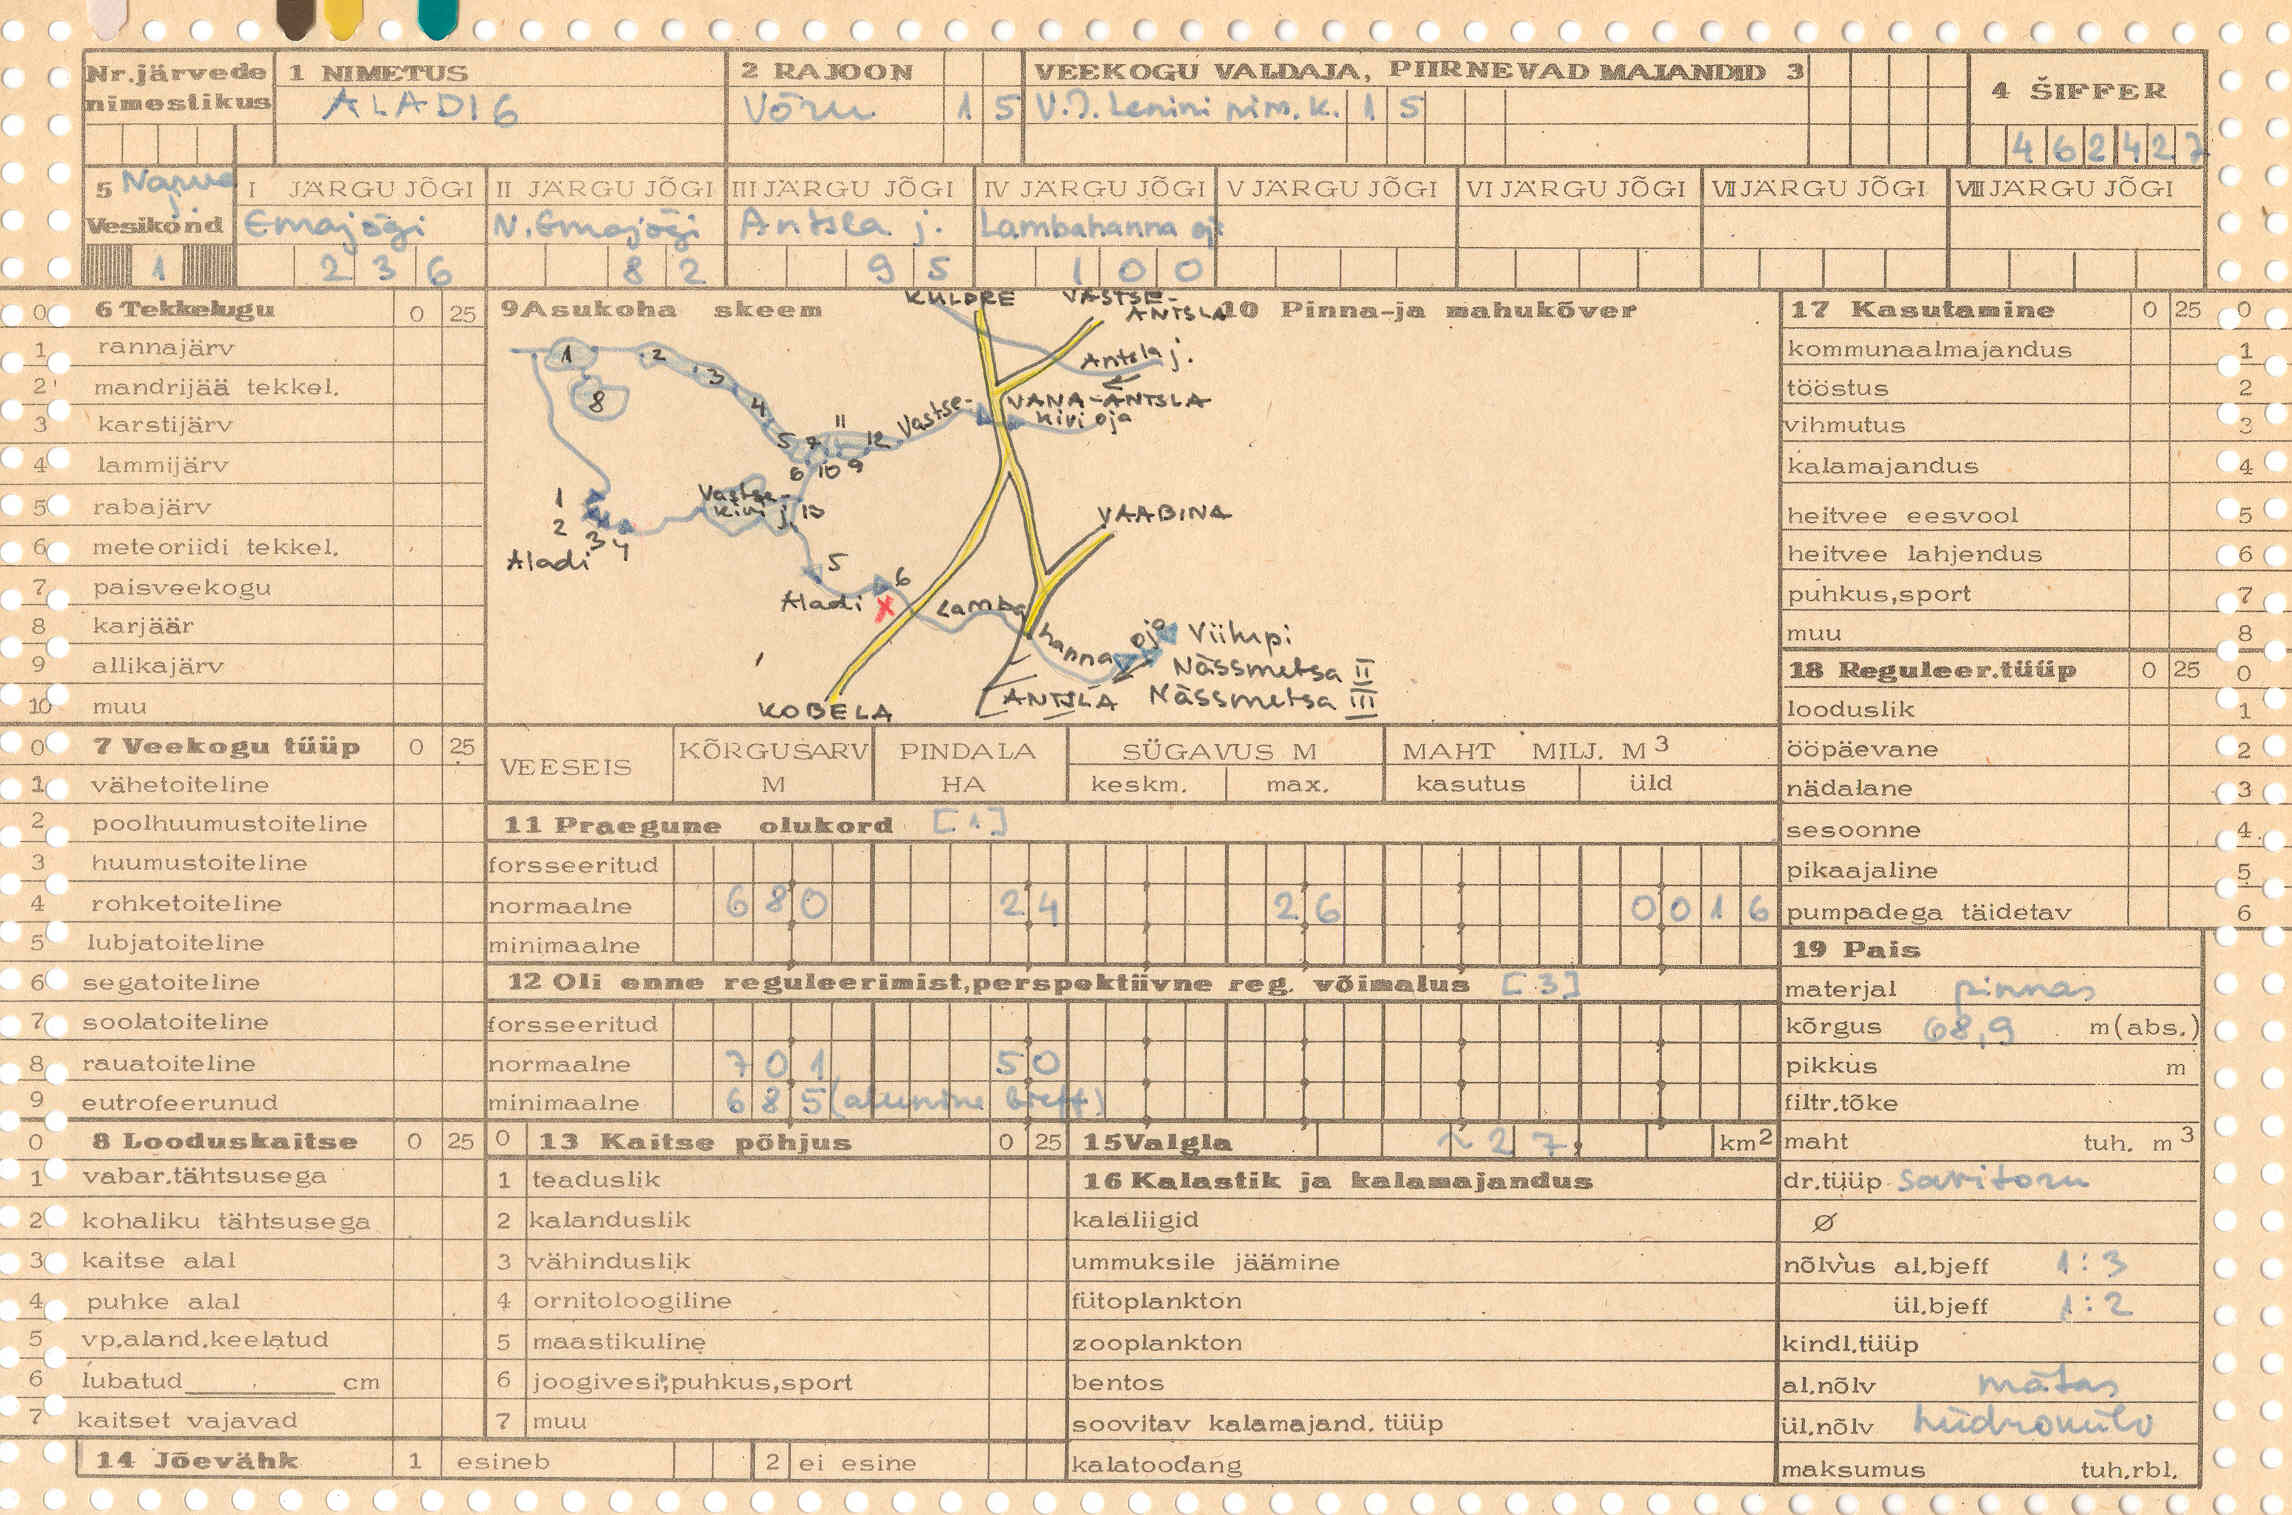 Nr.järvede nimestikus
1 NIMETUS
ALADI 6
2 RAJOON
Võru 1 5
VEEKOGU VALDAJA, PIIRNEVAD MAJANDID 3
V.I. Lenini nim. k. 1 5
4 ŠIFFER
4 6 2 4 2 7
5 Narva j. Vesikond
1
I JÄRGU JÕGI
Emajõgi
2 3 6
II JÄRGU JÕGI
N. Emajõgi
8 2
III JÄRGU JÕGI
Antsla j.
9 5
IV JÄRGU JÕGI
Lambahanna oja
1 0 0
V JÄRGU JÕGI
VI JÄRGU JÕGI
VII JÄRGU JÕGI
VIII JÄRGU JÕGI
0 6 Tekkelugu 0 25
1 rannajärv
2 mandrijää tekkel.
3 karstijärv
4 lammijärv
5 rabajärv
6 meteoriidi tekkel.
7 paisveekogu
8 karjäär
9 allikajärv
10 muu
0 7 Veekogu tüüp 0 25
1 vähetoiteline
2 poolhuumustoiteline
3 huumustoiteline
4 rohketoiteline
5 lubjatoiteline
6 segatoiteline
7 soolatoiteline
8 rauatoiteline
9 eutrofeerunud
0 8 Looduskaitse 0 25
1 vabar.tähtsusega
2 kohaliku tähtsusega
3 kaitse alal
4 puhke alal
5 vp.aland.keelatud
6 lubatud cm
7 kaitset vajavad
14 Jõevähk 1 esineb 2 ei esine
9 Asukoha skeem
10 Pinna-ja mahukõver
KULDRE
VASTSE-ANTSLA
Antsla j.
VANA-ANTSLA
Vastse-
kivi oja
1
2
3
4
5
7
11
12
8
6 10 9
Vastse-
kivi j. 13
1
2
3 4
Aladi
5
6
Aladi
x
VAABINA
Lamba
hanna oja
Viilupi
Nässmetsa II
Nässmetsa III
ANTSLA
KOBELA
VEESEIS
KÕRGUSARV M
PINDALA HA
SÜGAVUS M
keskm. max.
MAHT MILJ. M3
kasutus üld
11 Praegune olukord [1]
forsseeritud
normaalne 6 8 0 2 4 2 6 0 0 1 6
minimaalne
12 Oli enne reguleerimist,perspektiivne reg. võimalus [3]
forsseeritud
normaalne 7 0 1 5 0
minimaalne 6 8 5 (alumine bieff)
0 13 Kaitse põhjus 0 25
1 teaduslik
2 kalanduslik
3 vähinduslik
4 ornitoloogiline
5 maastikuline
6 joogivesi,puhkus,sport
7 muu
15 Valgla ~ 2 7 km2
16 Kalastik ja kalamajandus
kalaliigid
ummuksile jäämine
fütoplankton
zooplankton
bentos
soovitav kalamajand. tüüp
kalatoodang
17 Kasutamine 0 25 0
kommunaalmajandus 1
tööstus 2
vihmutus 3
kalamajandus 4
heitvee eesvool 5
heitvee lahjendus 6
puhkus,sport 7
muu 8
18 Reguleer.tüüp 0 25 0
looduslik 1
ööpäevane 2
nädalane 3
sesoonne 4
pikaajaline 5
pumpadega täidetav 6
19 Pais
materjal pinnas
kõrgus 68,9 m(abs.)
pikkus m
filtr.tõke
maht tuh. m3
dr.tüüp savitoru
Ø
nõlvus al.bjeff 1:3
ül.bjeff 1:2
kindl.tüüp
al.nõlv mätas
ül.nõlv hüdrokülv
maksumus tuh.rbl.